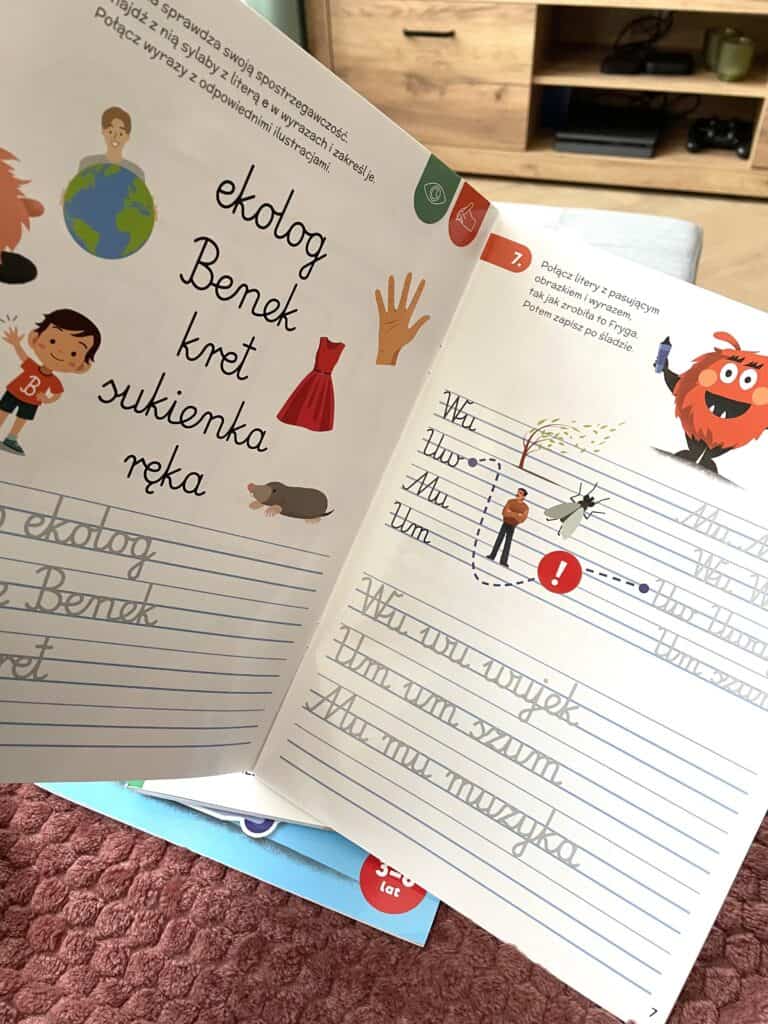 sprawdza swoją spostrzegawczość.
z nią sylaby z literą e w wyrazach i zakreśl je.
Połącz wyrazy z odpowiednimi ilustracjami.
ekolog
Benek
kret
sukienka
ręka
B
ekolog
Benek
7.
Połącz litery z pasującym
obrazkiem i wyrazem,
tak jak zrobiła to Fryga.
Potem zapisz po śladzie.
Wu
Uw
Mu
Um
!
Wu wu wujek
Um um szum
Mu mu muzyka
7
lat